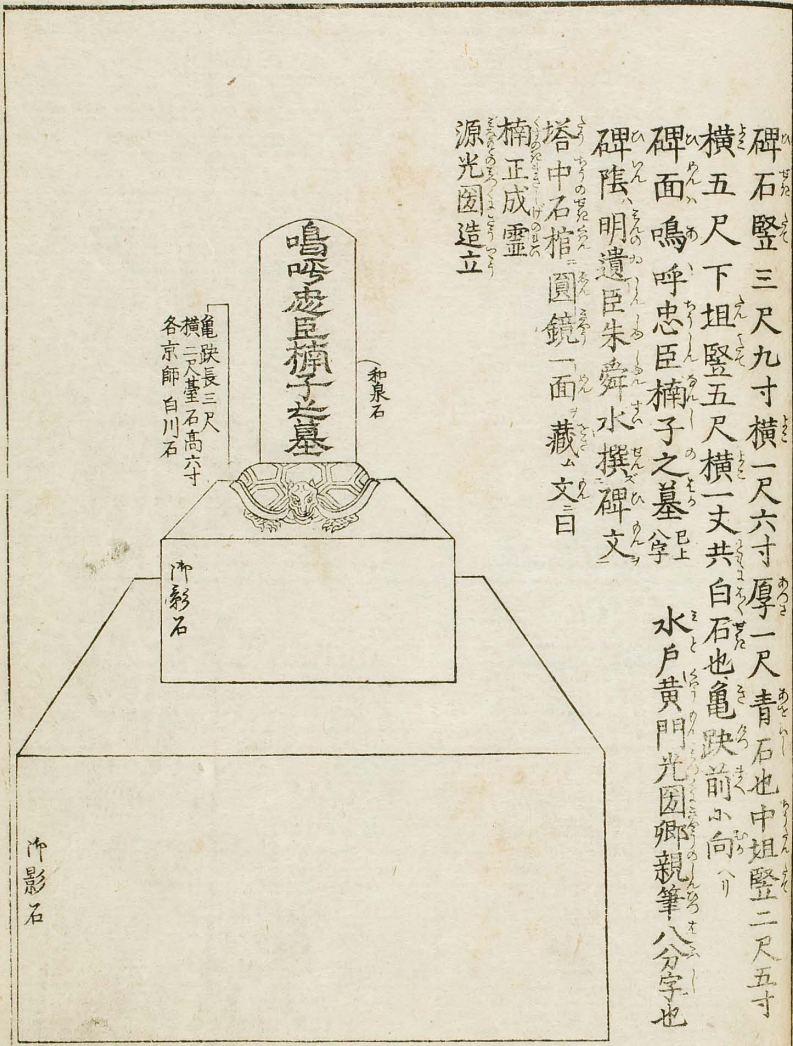 碑石竪三尺九寸横一尺六寸厚一尺青石也中坦竪二尺五寸
横五尺下坦竪五尺横一丈共白石也亀趺前に向ヘリ
碑面嗚呼忠臣楠子之墓 已上八字 水戸黄門光圀卿親筆八分字也
碑陰ハ明遺臣朱舜水撰ズ碑文ヲ
塔中石棺ニ圓鏡一面ヲ藏ム文ニ曰
楠正成霊
源光圀造立
嗚呼忠臣楠子之墓
和泉石
亀趺長三尺
横二尺臺石高六寸
各京師白川石
御影石
御影石